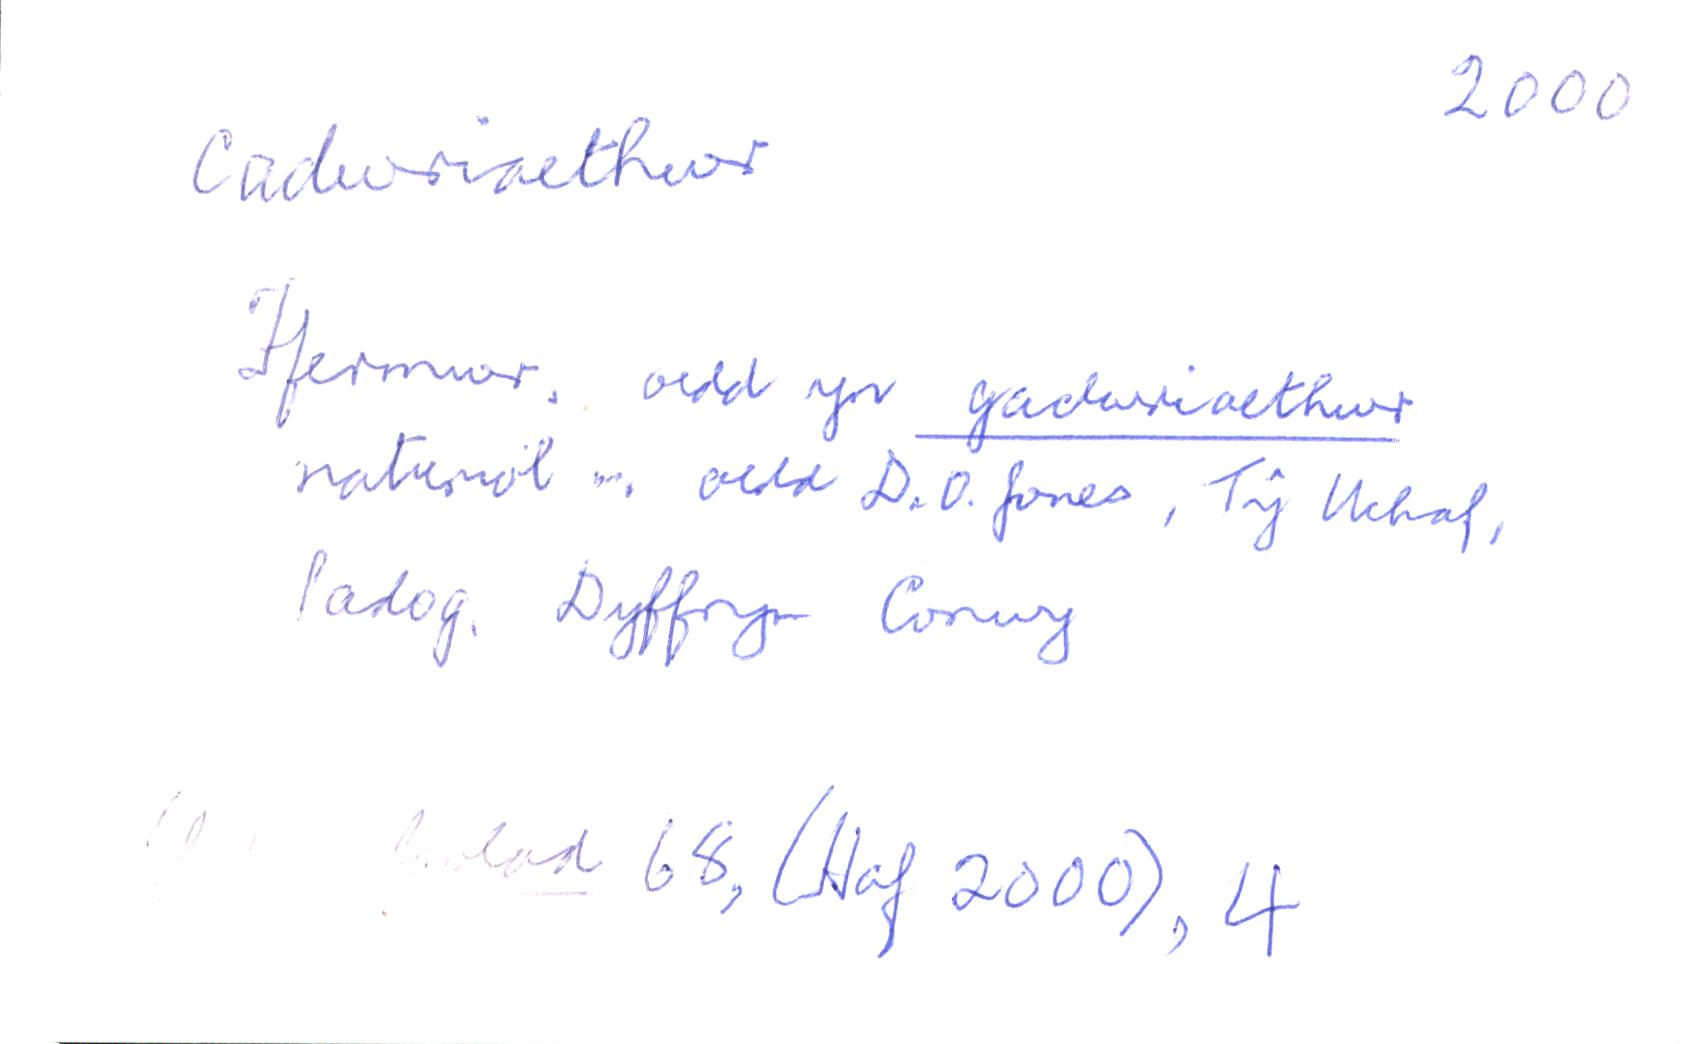 2000
Cadwriaethwr
Ffermwr. oedd yn gadwriaethwr
naturiol ... oedd D. O. Jones, Tŷ Uchaf,
Padog. Dyffryn Conwy
68, (Haf 2000), 4